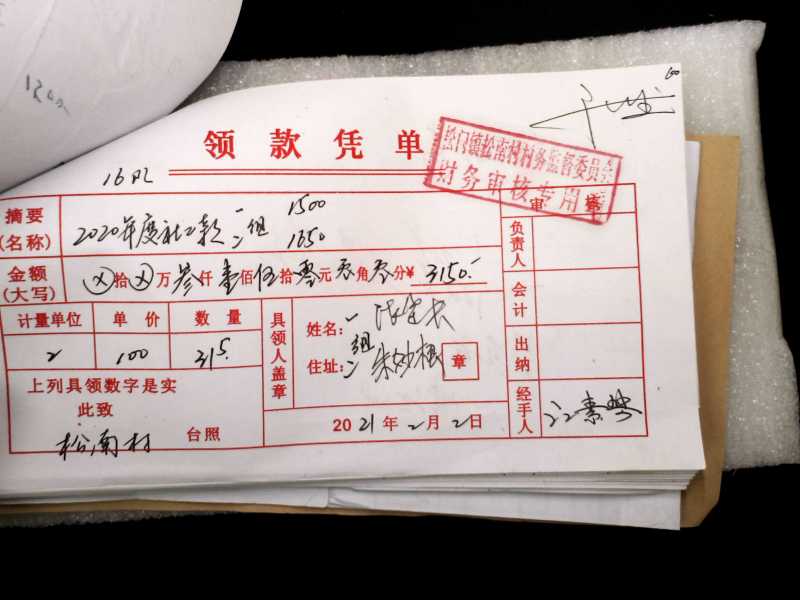 1200
100
领款凭单
松门镇松南村村务监督委员会
财务审核专用章
审 核
摘要
(名称)
2020年度社工款 一 组 1500
二 1650
金额
(大写)
⊗拾⊗万叁仟壹佰伍拾零元零角零分¥ 3150.-
计量单位 单 价 数 量
2 100 315.
上列具领数字是实
此致
松南村 台照
具领人盖章
姓名: 一
组
住址: 二 朱妙根 章
2021年2月2日
负责人
会计
出纳
经手人 江素琴